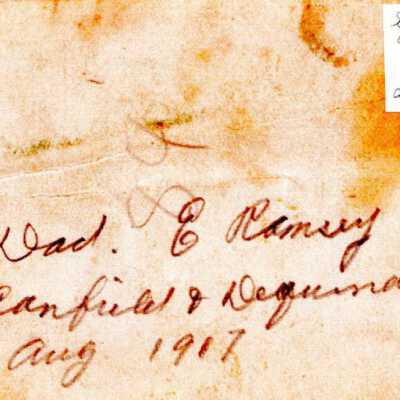 Dad. E Ramsey
Canfield & Dequind
Aug 1917